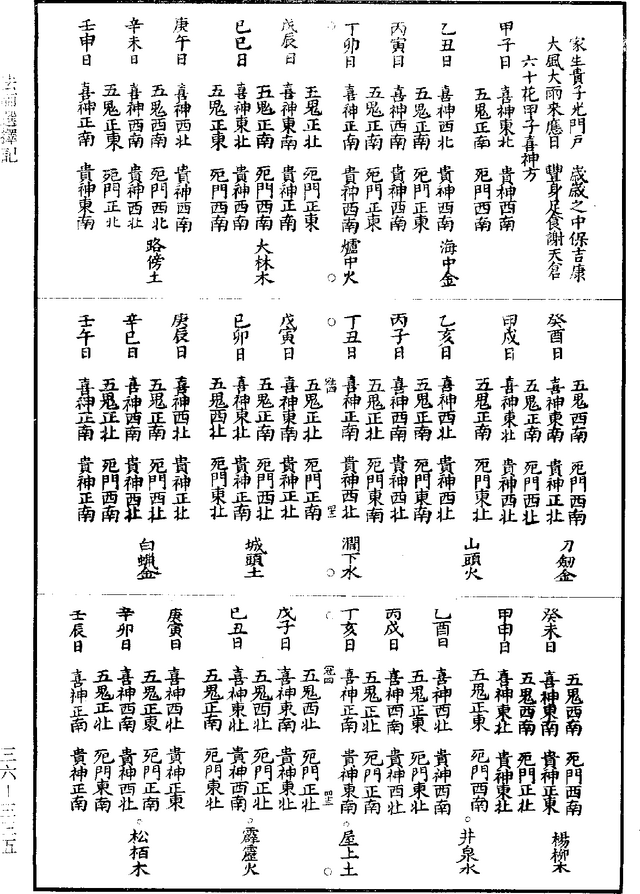 家生貴子光門戶 歲歲之中保吉康
大風大雨來應日 豐身足食謝天倉
六十花甲子喜神方
甲子日 喜神東北 貴神西南
五鬼正南 死門西南
乙丑日 喜神西北 貴神西南 海中金
五鬼正南 死門正東
丙寅日 喜神西南 貴神西南
五鬼正東 死門正東
丁卯日 喜神正南 貴神西南 爐中火
五鬼正北 死門正東
戊辰日 喜神東南 貴神正南
五鬼正南 死門西南 大林木
己巳日 喜神東北 貴神西南
五鬼正東 死門西南
庚午日 喜神西北 貴神西南
五鬼西南 死門西北 路傍土
辛未日 喜神西南 貴神西南
五鬼正東 死門正北
壬申日 喜神正南 貴神東南
五鬼西南 死門西南 刀劍金
癸酉日 喜神東南 貴神正北
五鬼正南 死門西北
甲戌日 喜神東北 貴神西南
五鬼正南 死門東北 山頭火
乙亥日 喜神西北 貴神西北
五鬼正南 死門東南
丙子日 喜神西南 貴神西北
五鬼正北 死門東南
丁丑日 喜神正南 貴神西北 澗下水
五鬼正北 死門正南
戊寅日 喜神東南 貴神正北
五鬼正南 死門西北 城頭土
己卯日 喜神東北 貴神正北
五鬼西北 死門東北
庚辰日 喜神西北 貴神正北
五鬼正南 死門西北 白蠟金
辛巳日 喜神西南 貴神西北
五鬼正北 死門西南
壬午日 喜神正南 貴神正南
五鬼西南 死門西南 楊柳木
癸未日 喜神東南 貴神正東
五鬼西南 死門正北
甲申日 喜神東北 貴神東北
五鬼正東 死門西南 井泉水
乙酉日 喜神西北 貴神西南
五鬼正東 死門東北
丙戌日 喜神西南 貴神西北
五鬼正南 死門東北
丁亥日 喜神正南 貴神東南 屋上土
五鬼西北 死門正北
戊子日 喜神東南 貴神正北
五鬼西北 死門正北 霹靂火
己丑日 喜神東北 貴神西南
五鬼正南 死門東南
庚寅日 喜神西北 貴神正東
五鬼正東 死門正南 松栢木
辛卯日 喜神西南 貴神東北
五鬼正北 死門東南
壬辰日 喜神正南 貴神正南
三六－三三五